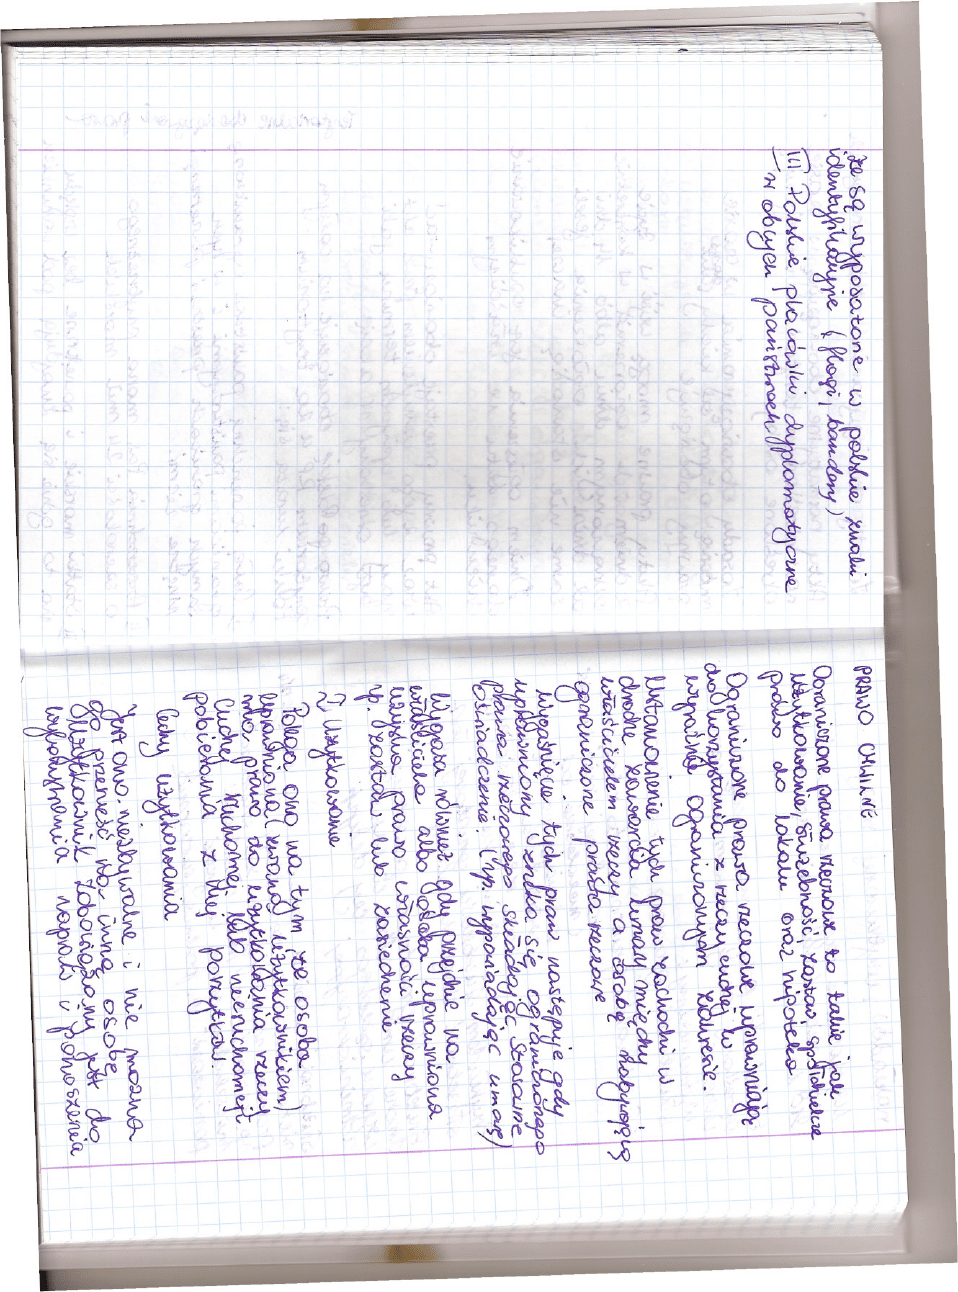 że są wyposażone w polskie znaki
identyfikacyjne (flagi, bandery)
III Polskie placówki dyplomatyczne
w obcych państwach
PRAWO CYWILNE
Ograniczone prawa rzeczowe to takie jak
użytkowanie, służebność, zastaw, spółdzielcze
prawo do lokalu oraz hipoteka
Ograniczone prawa rzeczowe uprawniają
do korzystania z rzeczy cudzej w
wyraźnie ograniczonym zakresie.
Ustanowienie tych praw zachodzi w
drodze zawarcia umowy między
właścicielem rzeczy a osobą nabywającą
ograniczone prawa rzeczowe
Wygaśnięcie tych praw następuje gdy
uprawniony zrzeka się ograniczonego
prawa rzeczowego składając stosowne
oświadczenie. (np. wypowiadając umowę)
Wygasa również gdy przejdzie na
właściciela albo osoba uprawniona
uzyska prawo własności rzeczy
np. zastaw lub zaniechanie
I Użytkowanie
Polega ono na tym że osoba
uprawniona (zwana użytkownikiem)
ma prawo do użytkowania rzeczy
cudzej ruchomej lub nieruchomej i
pobierania z niej pożytków.
Cechy użytkowania
Jest ono niezbywalne i nie można
go przenieść na inną osobę
Użytkownik zobowiązany jest do
wykonywania napraw i ponoszenia